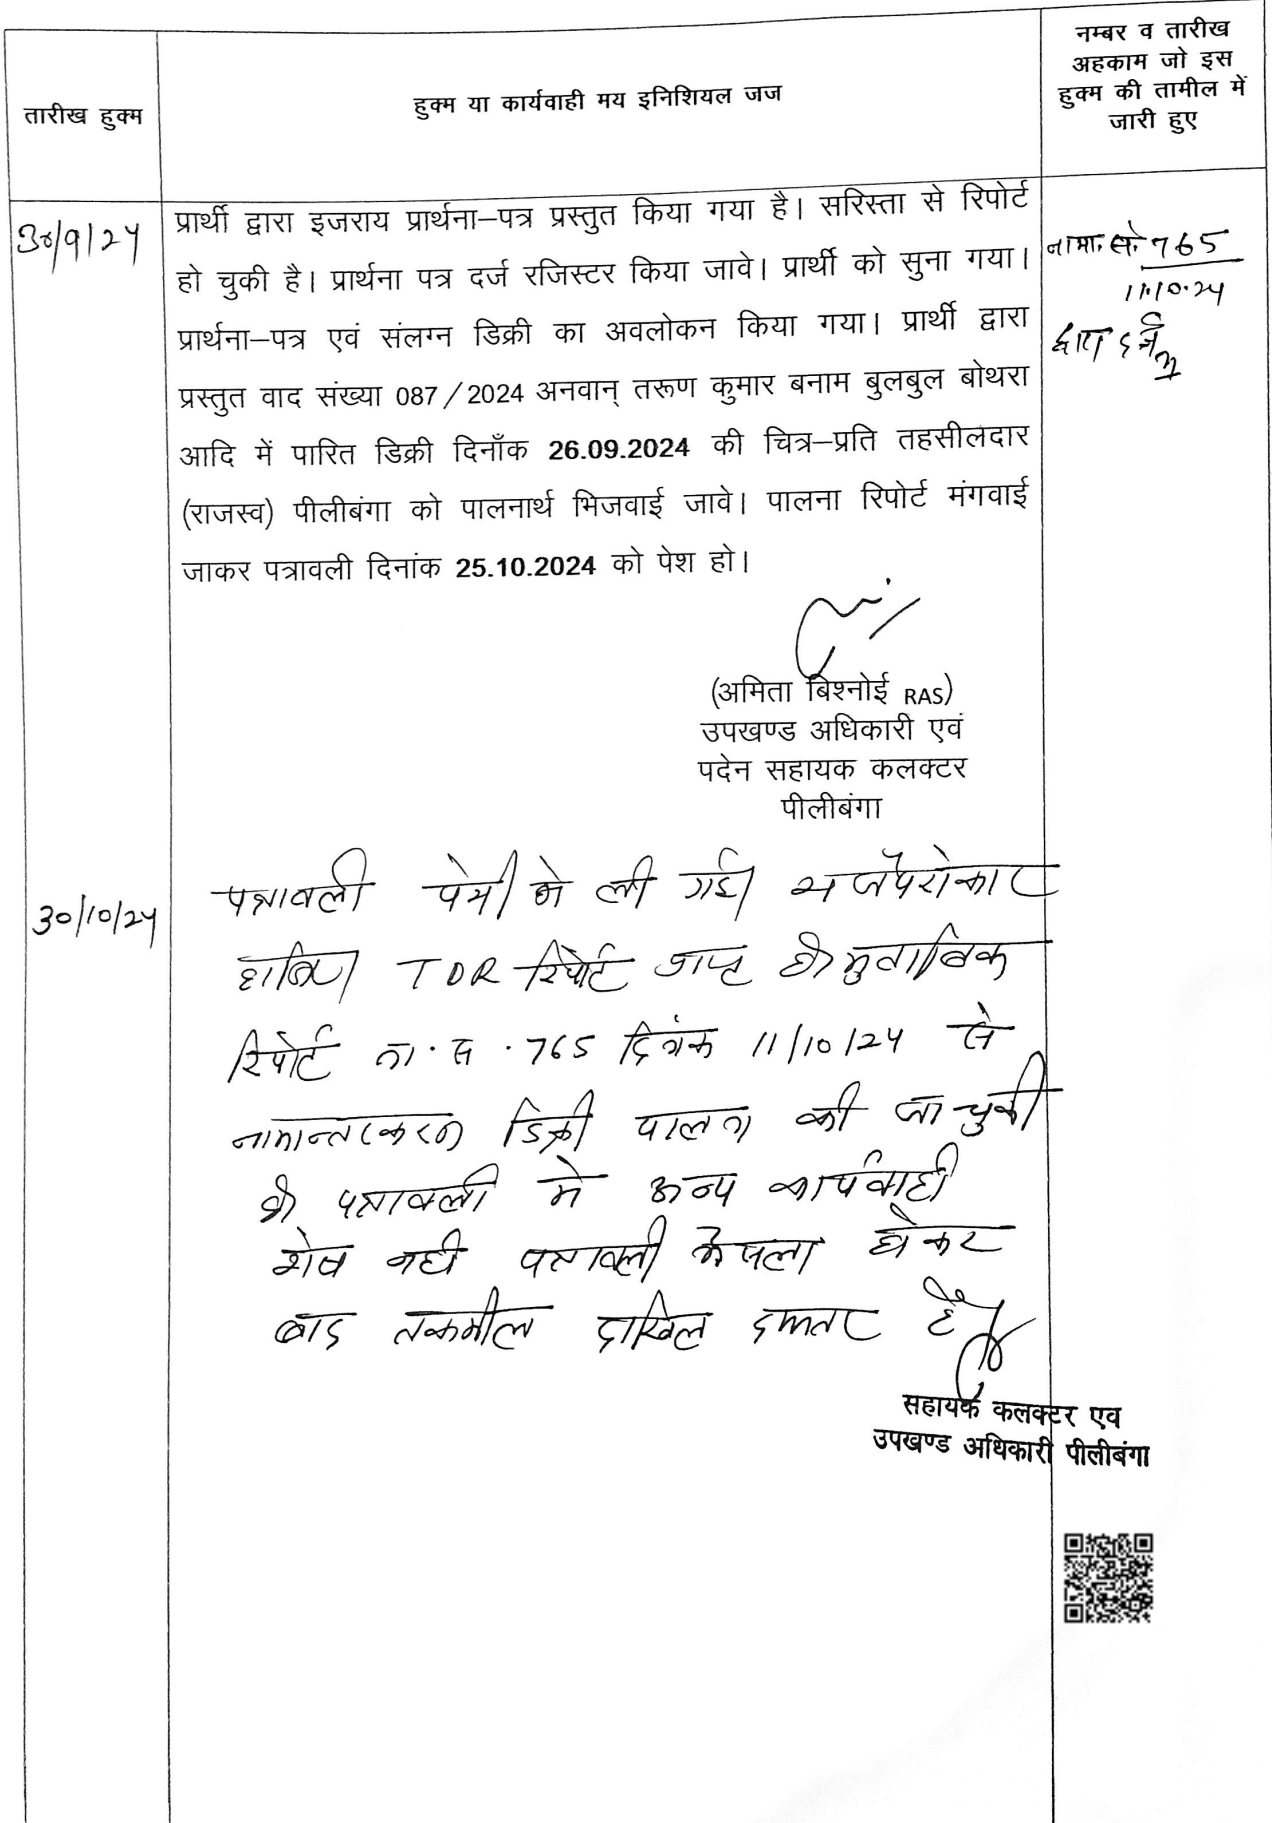 तारीख हुक्म
हुक्म या कार्यवाही मय इनिशियल जज
नम्बर व तारीख
अहकाम जो इस
हुक्म की तामील में
जारी हुए
30/9/24
प्रार्थी द्वारा इजराय प्रार्थना–पत्र प्रस्तुत किया गया है। सरिस्ता से रिपोर्ट
हो चुकी है। प्रार्थना पत्र दर्ज रजिस्टर किया जावे। प्रार्थी को सुना गया।
प्रार्थना–पत्र एवं संलग्न डिक्री का अवलोकन किया गया। प्रार्थी द्वारा
प्रस्तुत वाद संख्या 087/2024 अनवान् तरूण कुमार बनाम बुलबुल बोथरा
आदि में पारित डिक्री दिनाँक 26.09.2024 की चित्र–प्रति तहसीलदार
(राजस्व) पीलीबंगा को पालनार्थ भिजवाई जावे। पालना रिपोर्ट मंगवाई
जाकर पत्रावली दिनांक 25.10.2024 को पेश हो।
नामा. सं. 765
11.10.24
द्वारा दर्ज
(अमिता बिश्नोई RAS)
उपखण्ड अधिकारी एवं
पदेन सहायक कलक्टर
पीलीबंगा
30/10/24
पत्रावली पेशी में ली गई।
हाजिर। TDR रिपोर्ट प्राप्त है। मुताबिक
रिपोर्ट ना. स. 765 दिनांक 11/10/24 से
नामान्तरकरण डिक्री पालना की जा चुकी
है। पत्रावली मे अन्य कार्यवाही
शेष नही पत्रावली फैसला होकर
बाद तकमील दाखिल दफ्तर हो।
सहायक कलक्टर एव
उपखण्ड अधिकारी पीलीबंगा